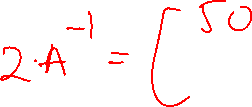 2·A⁻¹ = [ 50